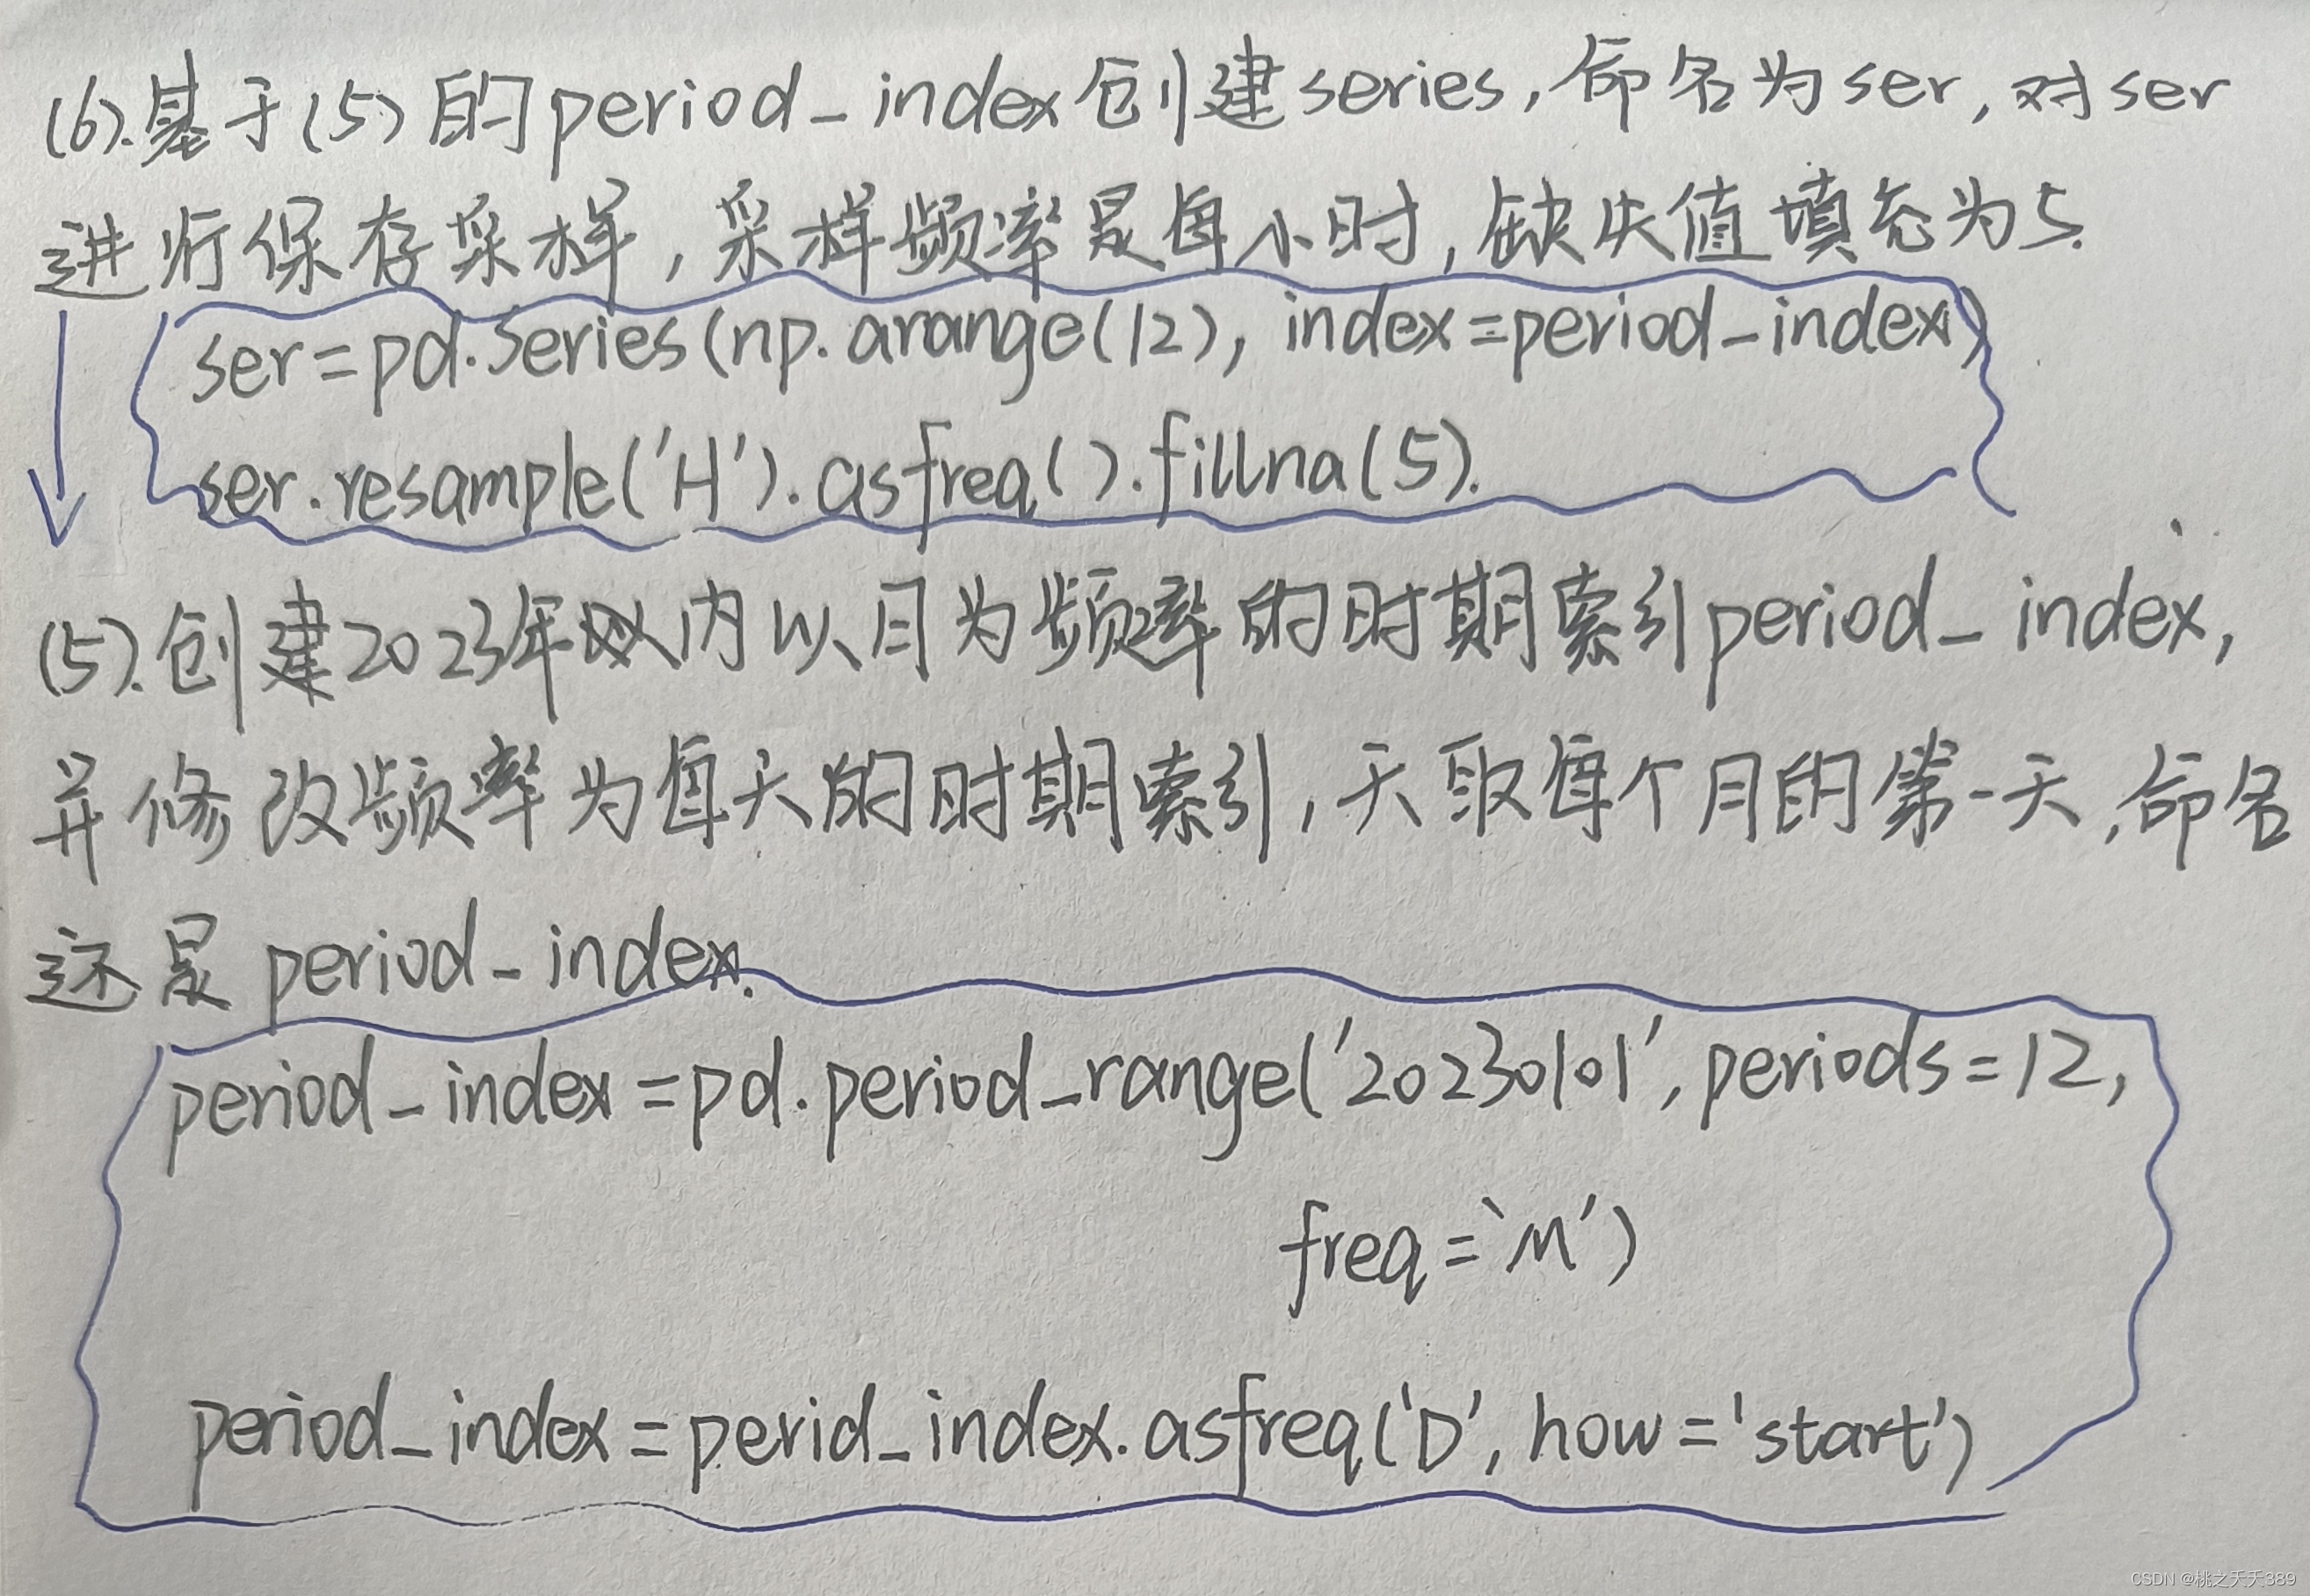 (6).基于(5)的period_index创建series,命名为ser,对ser
进行保存采样,采样频率是每小时,缺失值填充为5.
ser=pd.Series(np.arange(12), index=period_index)
ser.resample('H').asfreq().fillna(5).
(5).创建2023年以内以月为频率的时期索引period_index,
并修改频率为每天的时期索引,天取每个月的第一天,命名
还是period_index.
period_index=pd.period_range('20230101',periods=12,
freq='M')
period_index=perid_index.asfreq('D',how='start')
CSDN @桃之夭夭389